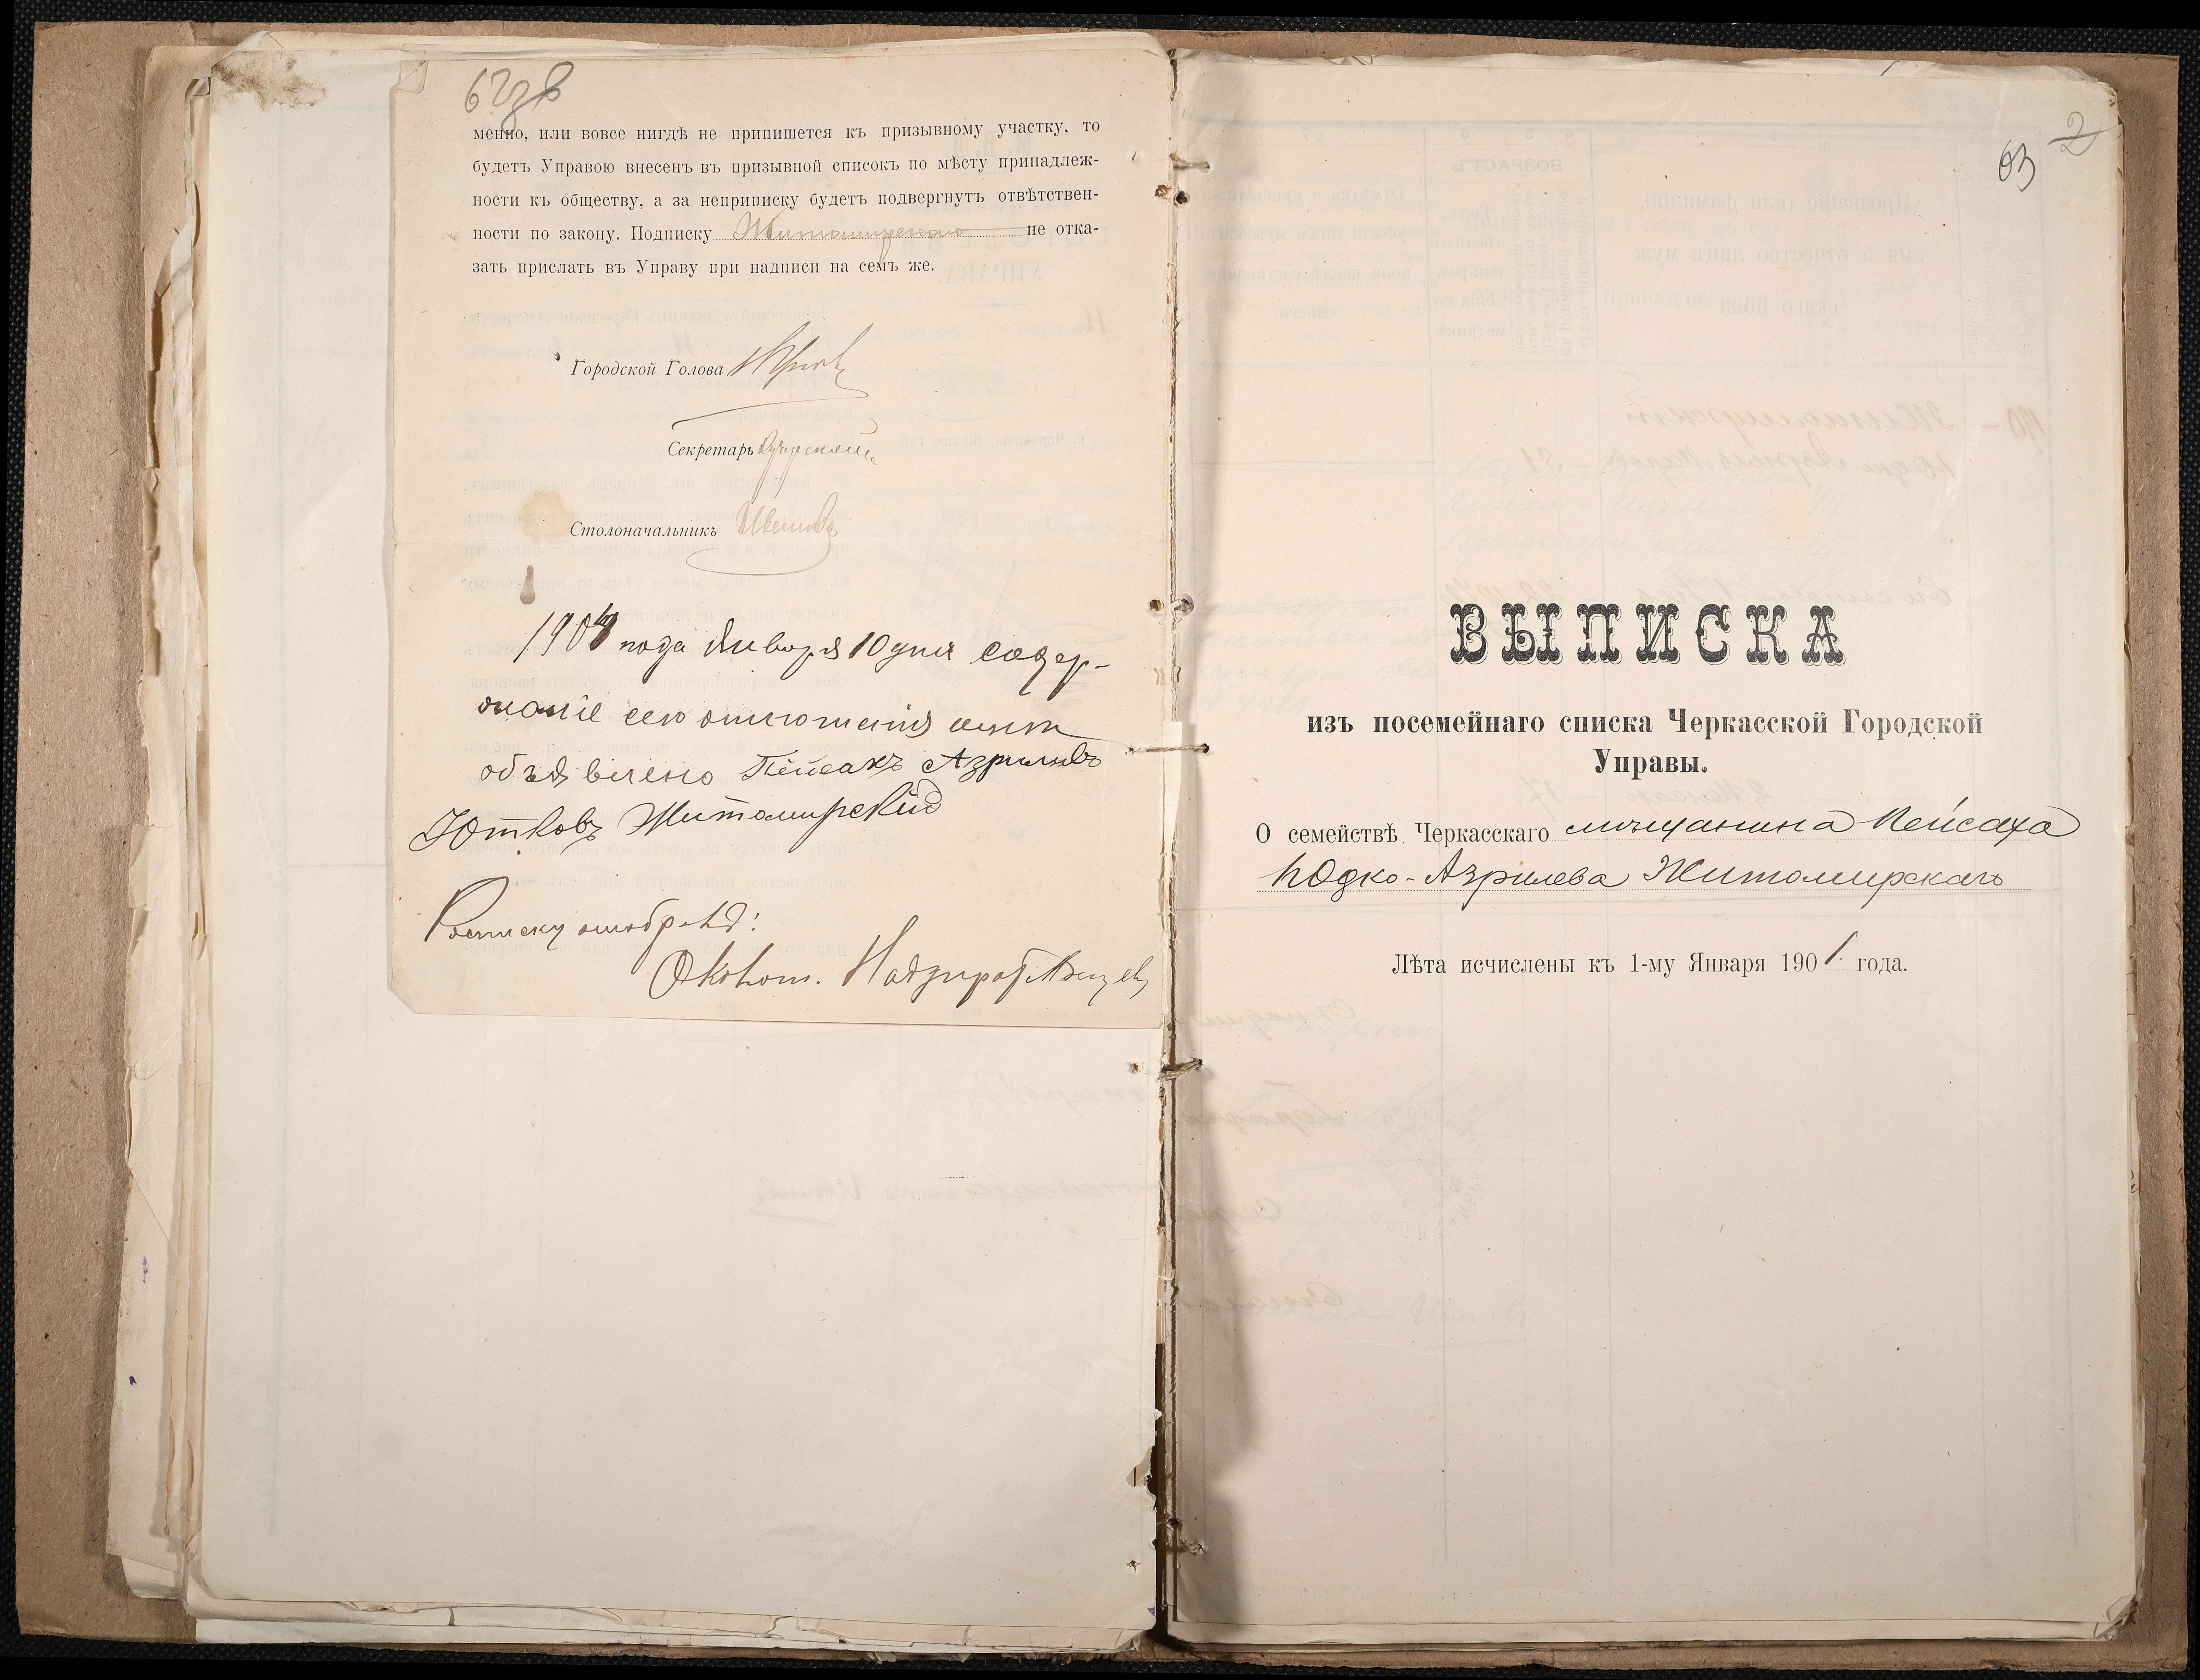 62об
менно, или вовсе нигдѣ не припишется къ призывному участку, то
будетъ Управою внесенъ въ призывной списокъ по мѣсту принадлеж-
ности къ обществу, а за неприписку будетъ подвергнутъ отвѣтствен-
ности по закону. Подписку Житомирскаго не отка-
зать прислать въ Управу при надписи на семъ же.
Городской Голова
Секретарь
Столоначальникъ
года Января 10 дня содер-
жаніе сего отношенія
объявлено Пейсахъ Азрилевъ
Ютковъ Житомирскій
Росписку отобралъ:
Околот. Надзират
63 2
ВЫПИСКА
изъ посемейнаго списка Черкасской Городской
Управы.
О семействѣ Черкасскаго мѣщанина Пейсаха
Юдко-Азрилева Житомирскаго
Лѣта исчислены къ 1-му Января 1901 года.